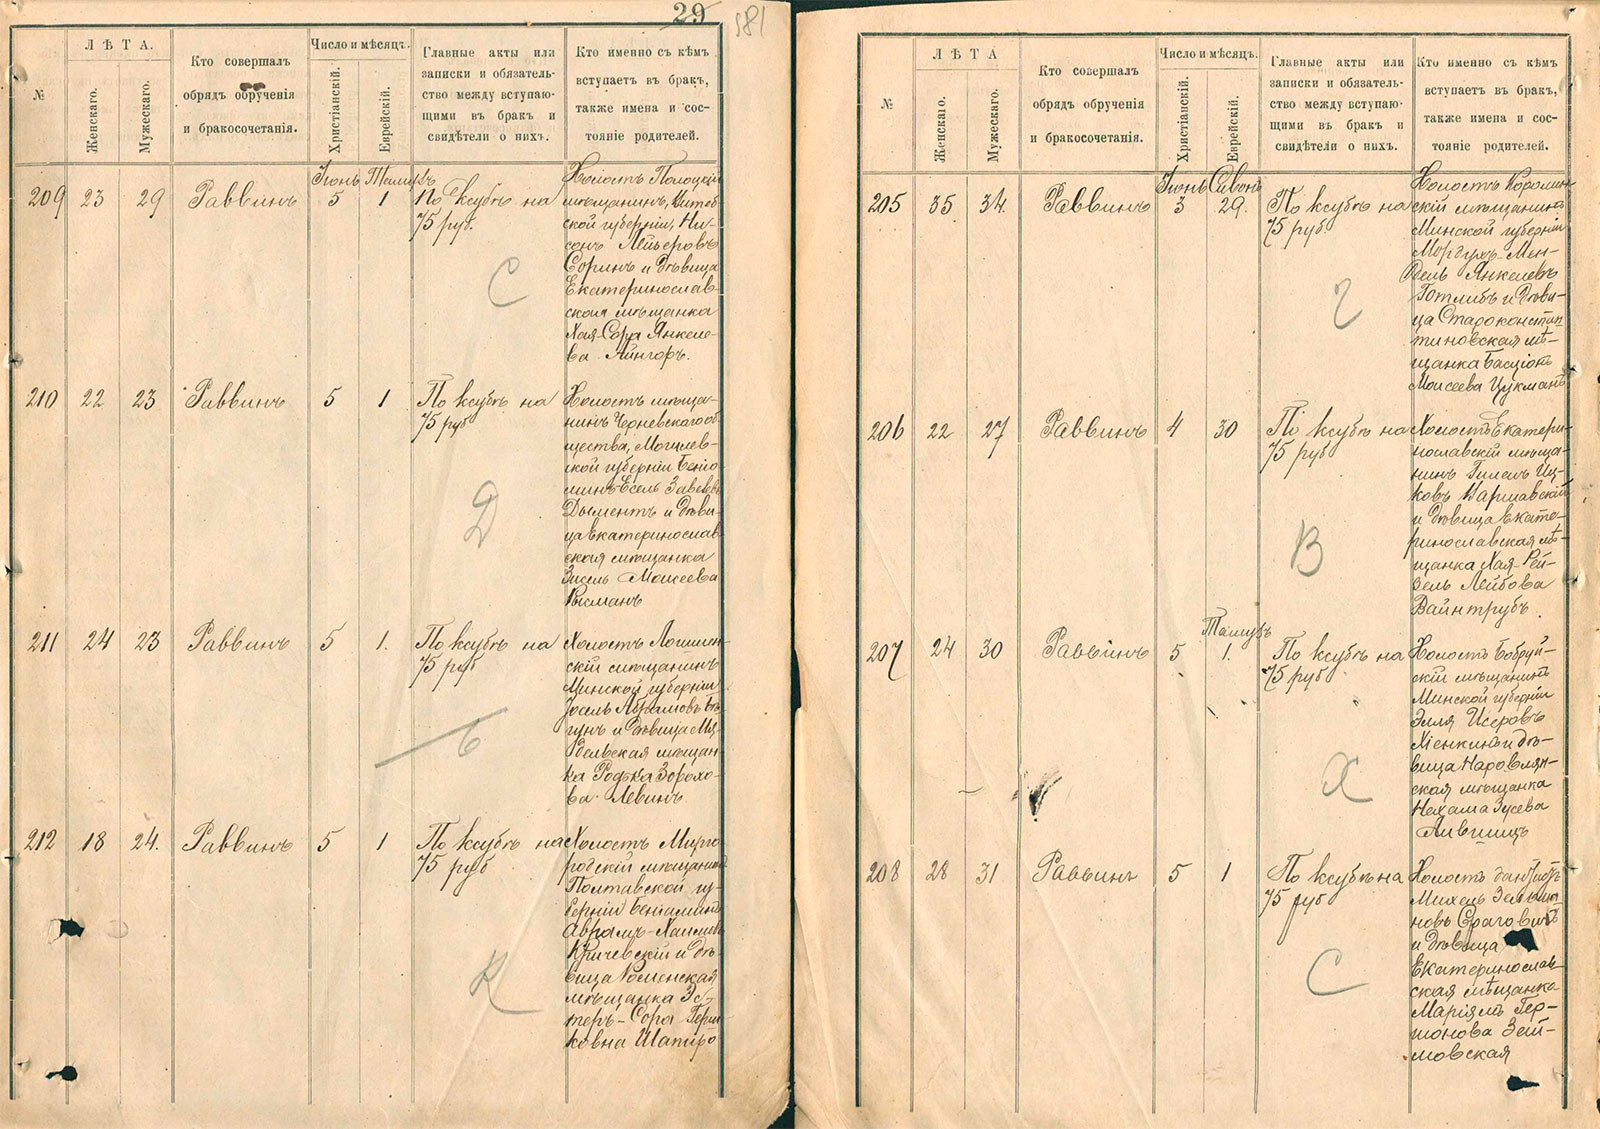 29
581
ЛѢТА.
Число и мѣсяцъ.
№
Женскаго.
Мужескаго.
Кто совершалъ
обрядъ обрученія
и бракосочетанія.
Христіанскій.
Еврейскій.
Главные акты или
записки и обязатель-
ство между вступаю-
щими въ бракъ и
свидѣтели о нихъ.
Кто именно съ кѣмъ
вступаетъ въ бракъ,
также имена и сос-
тояніе родителей.
Іюнь Тамузъ
209 23 29 Раввинъ 5 1
По ксубѣ на
75 руб.
С
Холостъ Полоцкій
мѣщанинъ, Витеб-
ской губерніи, Ни-
сонъ Лейзеровъ
Соринъ и дѣвица
Екатеринослав-
ская мѣщанка
Хая-Сора Янкеле-
ва Айнгоръ.
210 22 23 Раввинъ 5 1
По ксубѣ на
75 руб
Д
Холостъ мѣща-
нинъ Черневскаго об-
щества, Могилев-
ской губерніи Беніо
минъ-Есель
Дыментъ и дѣви-
ца Екатеринослав
ская мѣщанка
Зисель Моисеева
211 24 23 Раввинъ 5 1.
По ксубѣ на
75 руб
Б
Холостъ Логишен-
скій мѣщанинъ
Минской губерніи
Іосель Абрамовъ Бе
гунъ и дѣвица Мя-
дельская мѣщан-
ка Родька Зорохо-
ва Левинъ
212 18 24. Раввинъ 5 1
По ксубѣ на
75 руб
К
Холостъ Мирго
родскій мѣщанинъ
Полтавской гу-
берніи Беніаминъ
Аврамъ-Хаимовъ
Кричевскій и дѣ-
вица Роменская
мѣщанка Эс-
теръ-Сора Герш
ковна Шапиро
ЛѢТА
Число и мѣсяцъ.
№
Женскаго.
Мужескаго.
Кто совершалъ
обрядъ обрученія
и бракосочетанія.
Христіанскій.
Еврейскій.
Главные акты или
записки и обязатель-
ство между вступаю-
щими въ бракъ и
свидѣтели о нихъ.
Кто именно съ кѣмъ
вступаетъ въ бракъ,
также имена и сос-
тояніе родителей.
Іюнь Сивонъ
205 35 34. Раввинъ 3 29.
По ксубѣ на
75 руб
Г
Холостъ Королин-
скій мѣщанинъ
Минской губерніи
Мордухъ-Мен-
дель Янкелевъ
Готлибъ и дѣви-
ца Староконстан
тиновская мѣ-
щанка Басшіотъ
Моисеева Цукманъ
206 22 27 Раввинъ 4 30
По ксубѣ на
75 руб
В
Холостъ Екатери-
нославскій мѣща-
нинъ Гилель Иц-
ковъ Варшавскій
и дѣвица Екате-
ринославская мѣ-
щанка Хая-Рей-
зель Лейбова
Вайнтрубъ.
Тамузъ
207 24 30 Раввинъ 5 1.
По ксубѣ на
75 руб
Х
Холостъ Бобруй-
скій мѣщанинъ
Минской губерніи
Эиля Исеровъ
Хіенкинъ и дѣ-
вица Наровлян-
ская мѣщанка
Нехама Зусева
Лившицъ
208 28 31 Раввинъ 5 1
По ксубѣ на
75 руб
С
Холостъ дантистъ
Михель Зельма-
новъ Сраговичъ
и дѣвица
Екатеринослав-
ская мѣщанка
Маріямъ Гер-
шонова Зей-
мовская